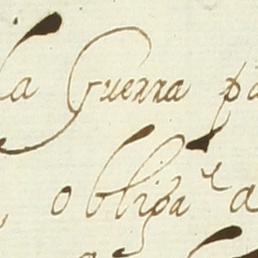 la Guerra pa
obligar a